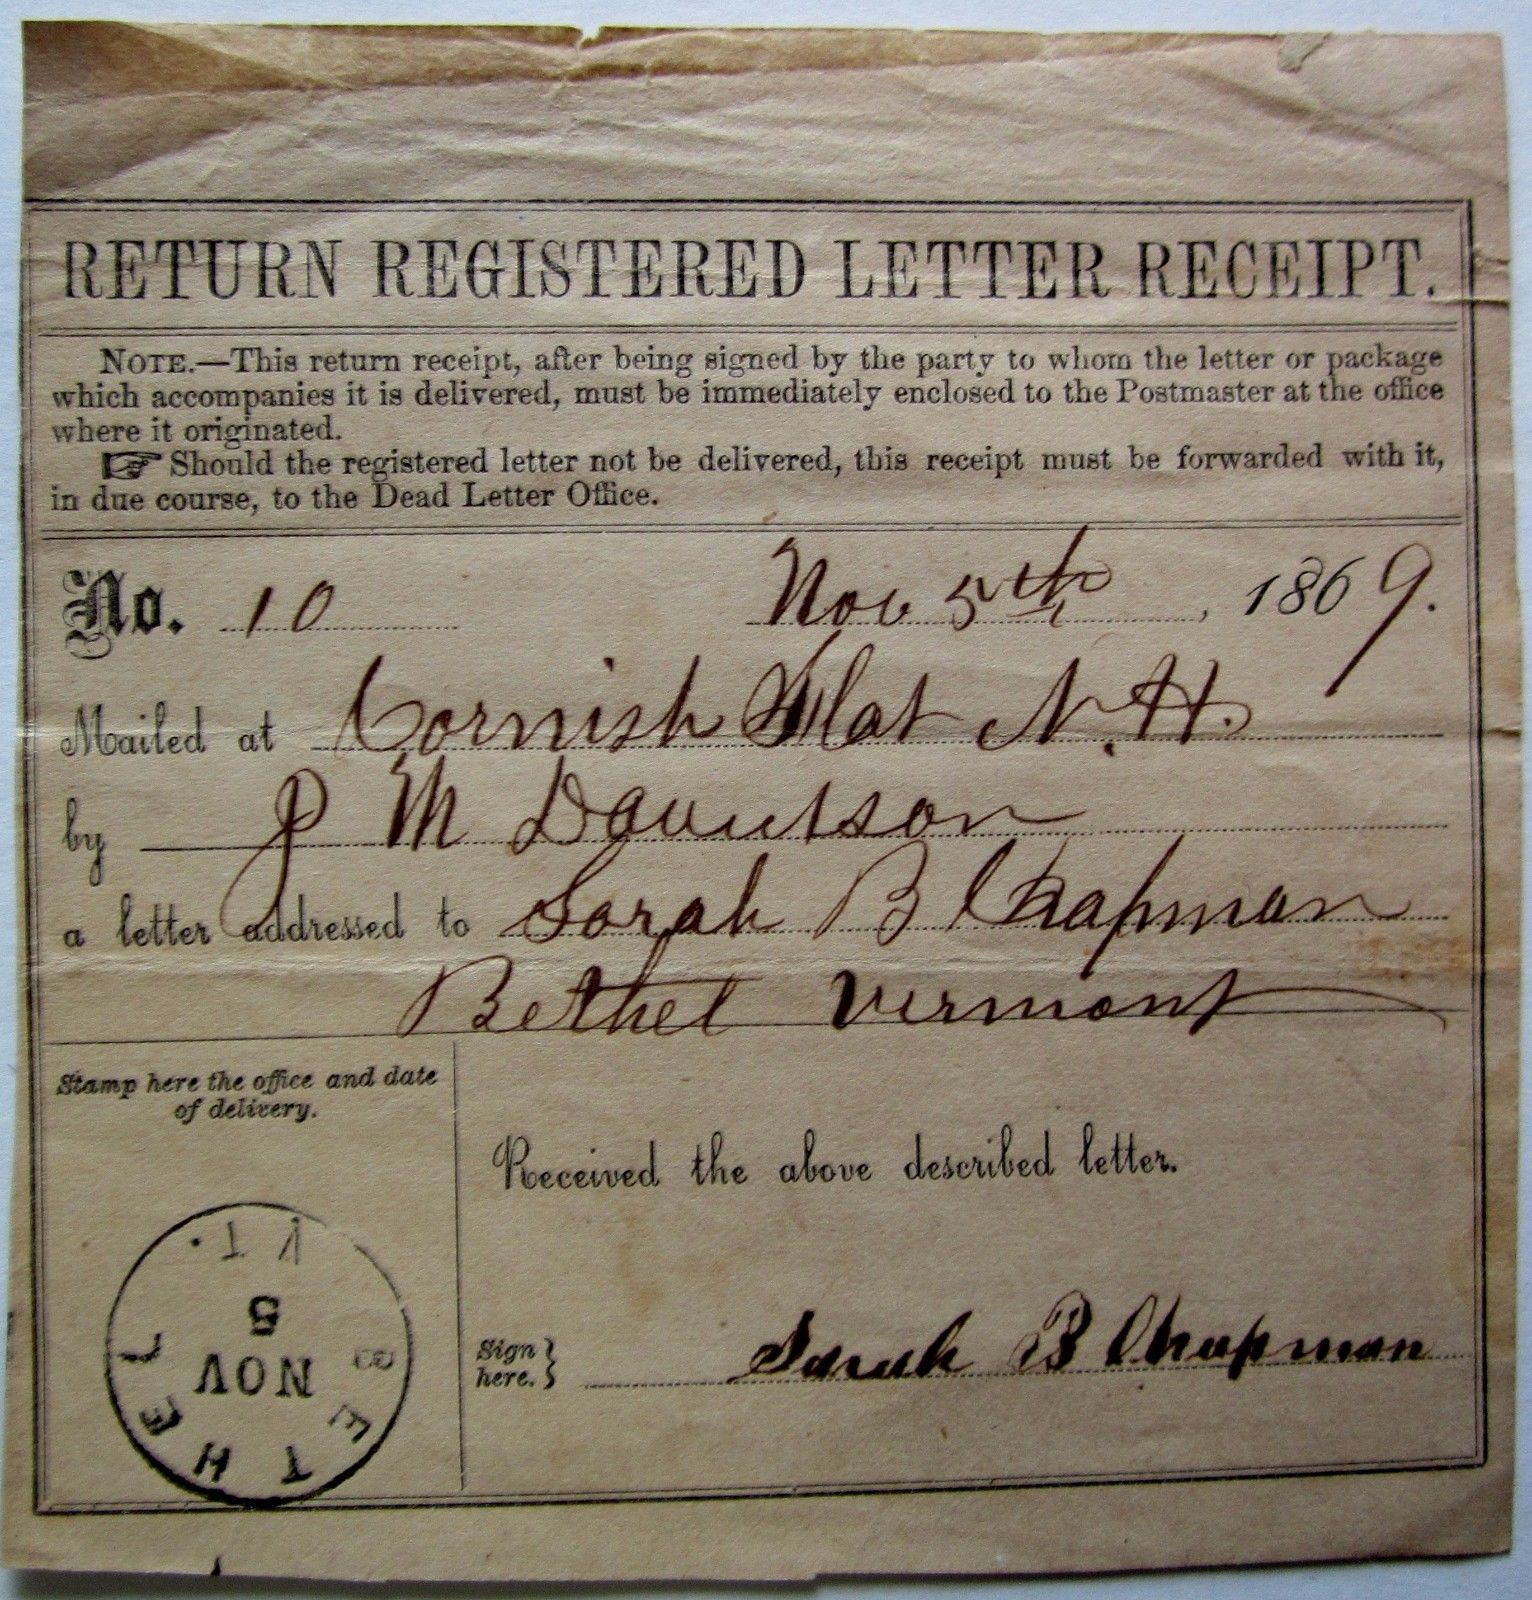 RETURN REGISTERED LETTER RECEIPT.
NOTE.—This return receipt, after being signed by the party to whom the letter or package
which accompanies it is delivered, must be immediately enclosed to the Postmaster at the office
where it originated.
☞ Should the registered letter not be delivered, this receipt must be forwarded with it,
in due course, to the Dead Letter Office.
No. 10 Nov 5th, 1869.
Mailed at Cornish Flat N.H.
by J M Davidson
a letter addressed to Sarah B Chapman
Bethel Vermont
Stamp here the office and date
of delivery.
Received the above described letter.
BETHEL VT.
NOV
5
Sign here. } Sarah B Chapman